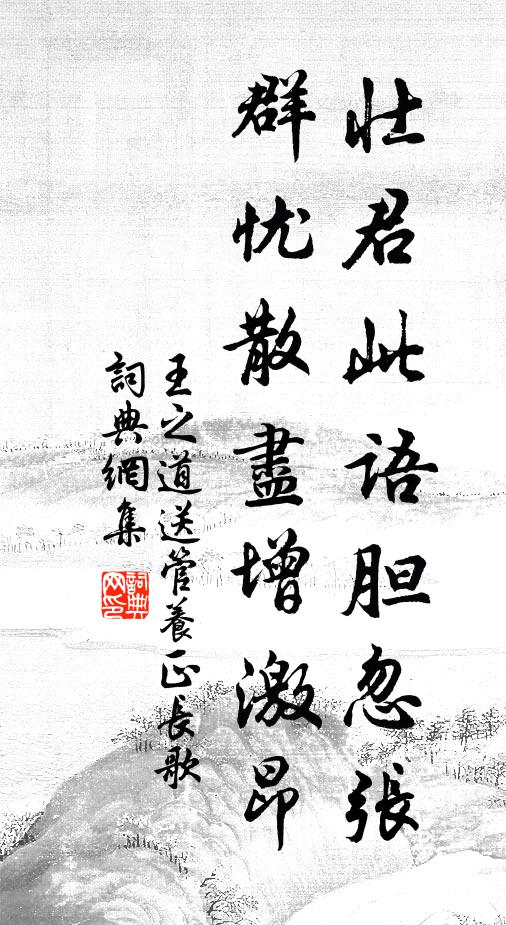 壮君此语胆忽張
群忧散盡增激昂
王之道送管養正長歌
詞典網集
詞典網印